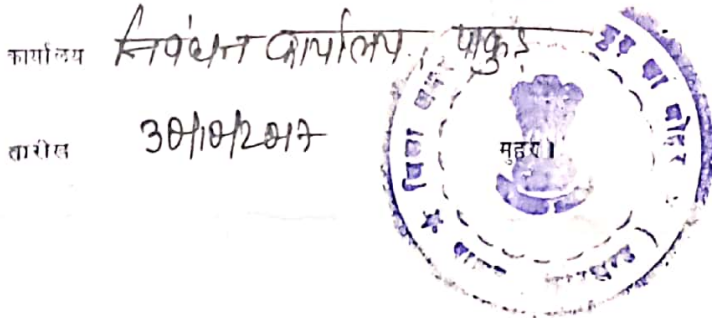 कार्यालय निबंधन कार्यालय, पाकुड़
तारीख 30/10/2017
मुहर।
जिला
झारखण्ड